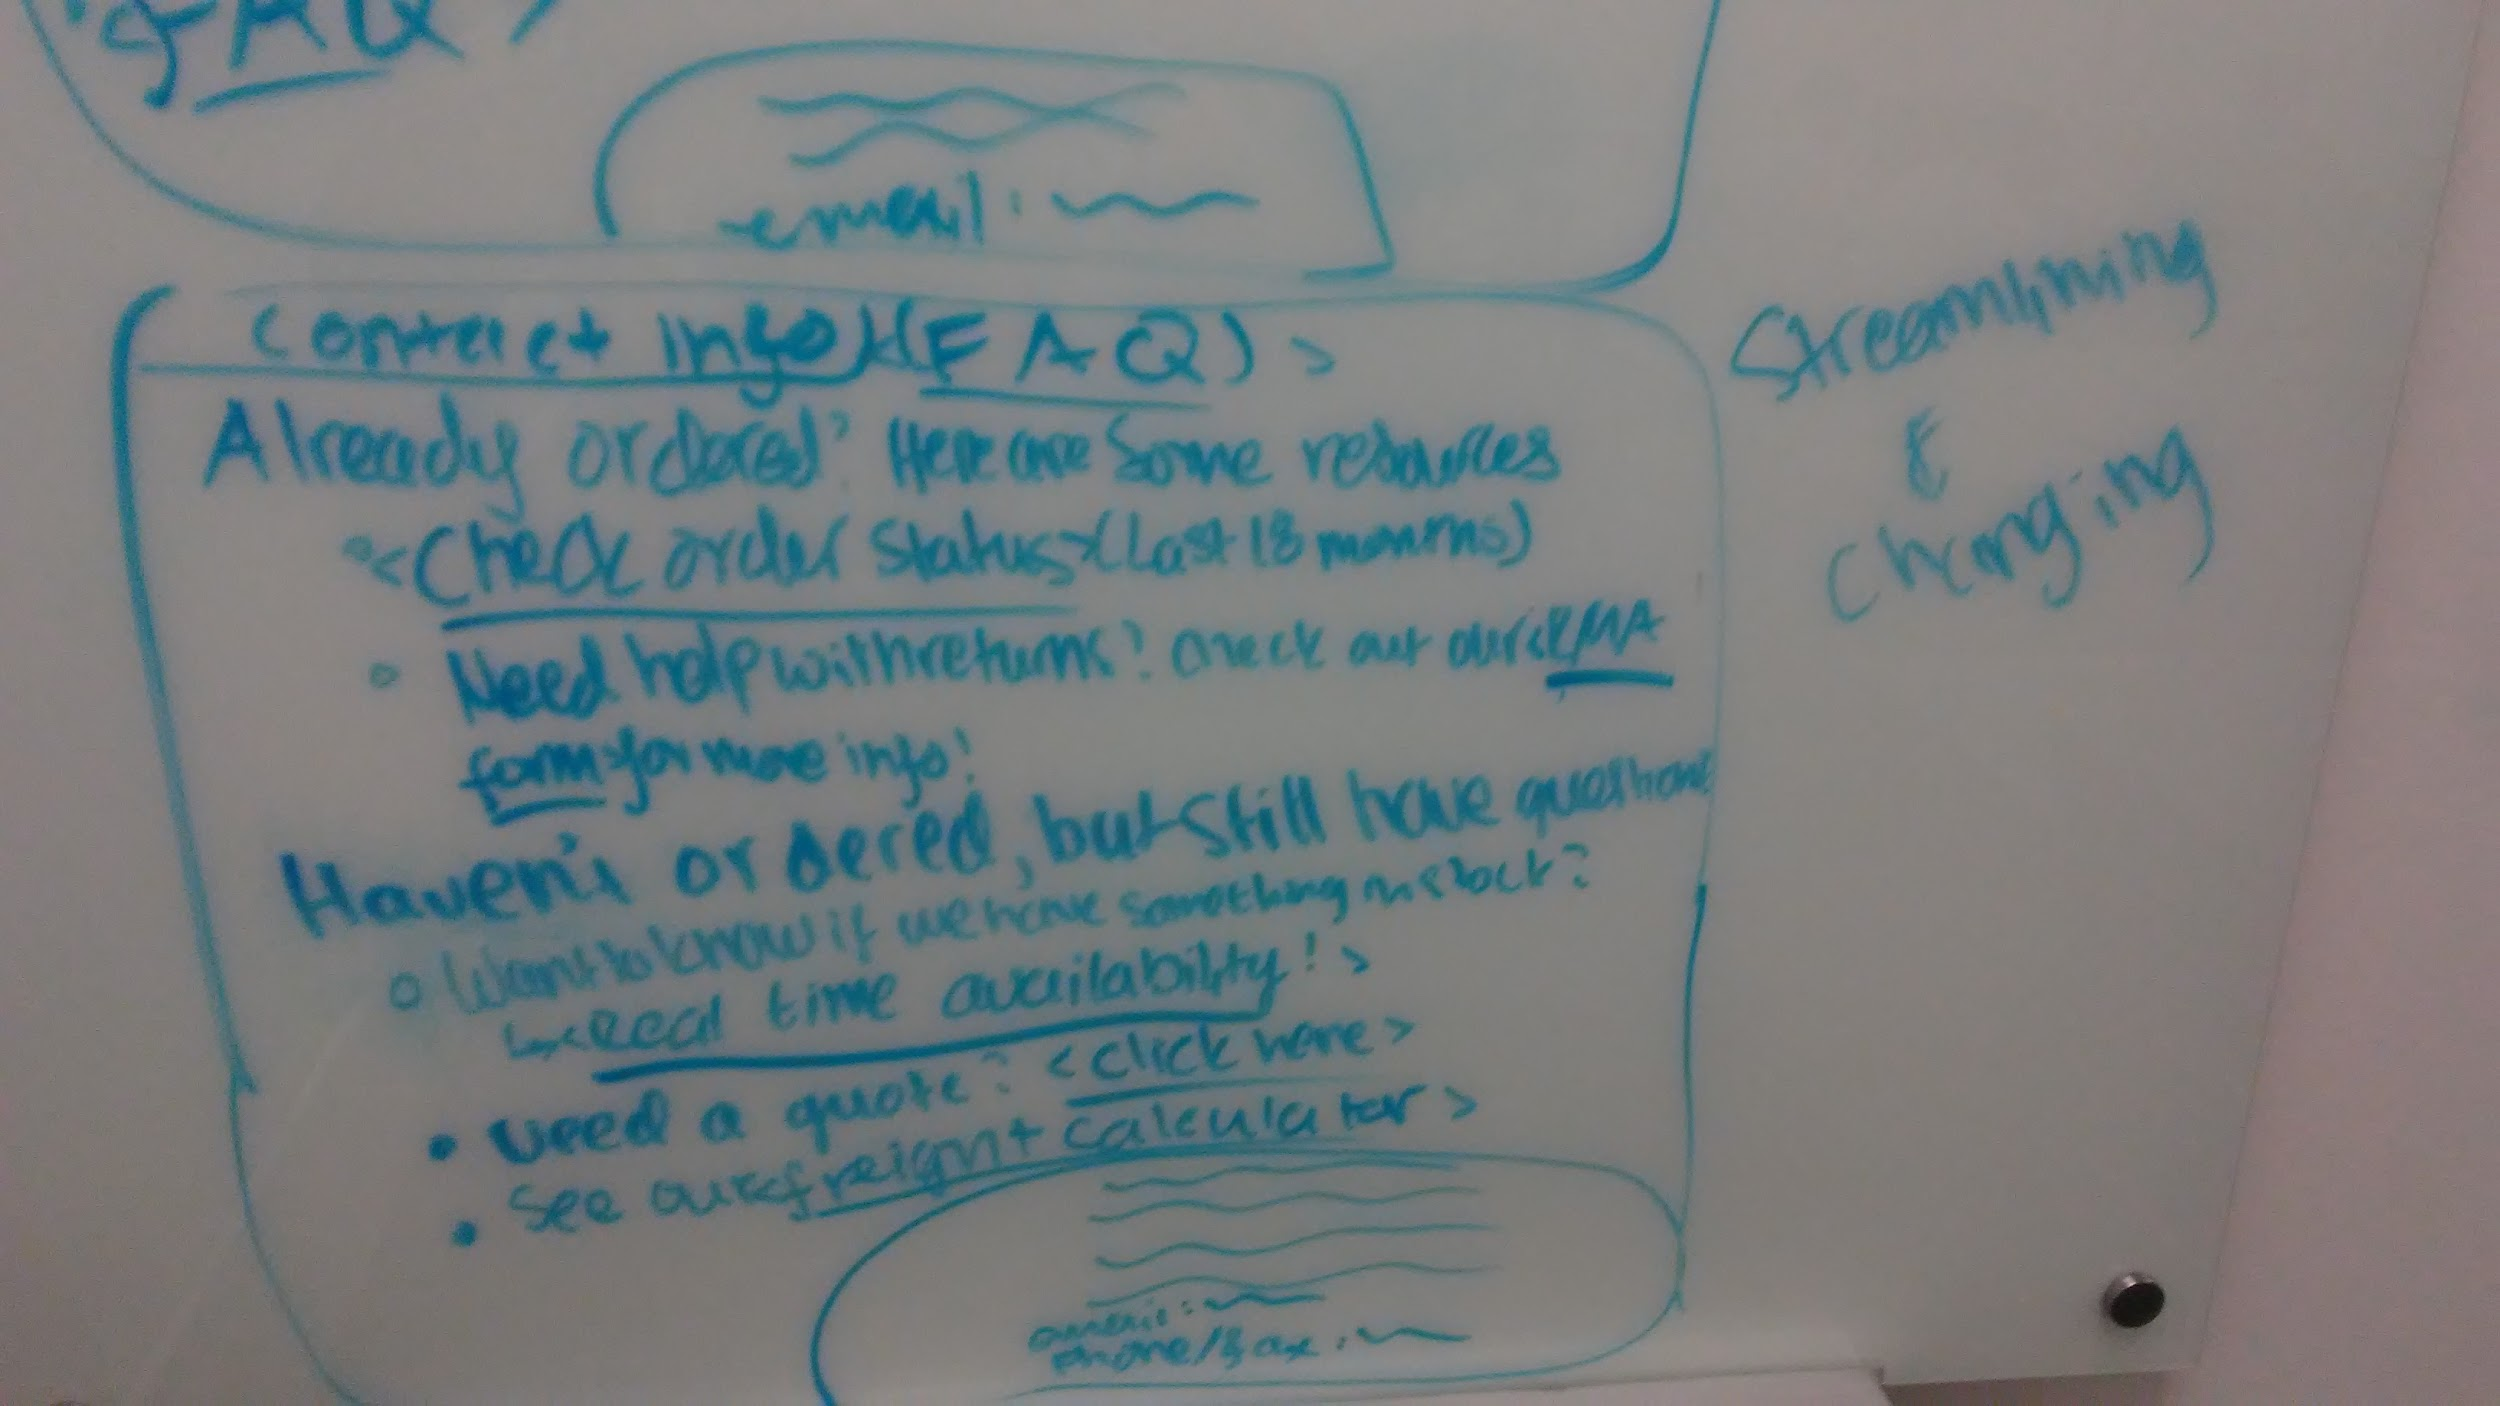 FAQ
email:
Contact Info (FAQ) >
Already ordered? Here are some resources
<Check order status> (Last 18 months)
Need help with returns? Check out our <RMA
form> for more info!
Haven't ordered, but still have questions
Want to know if we have something in stock?
<Real time availability! >
Need a quote? <click here>
See our <freight calculator>
email:
phone/fax:
Streamlining
&
Changing